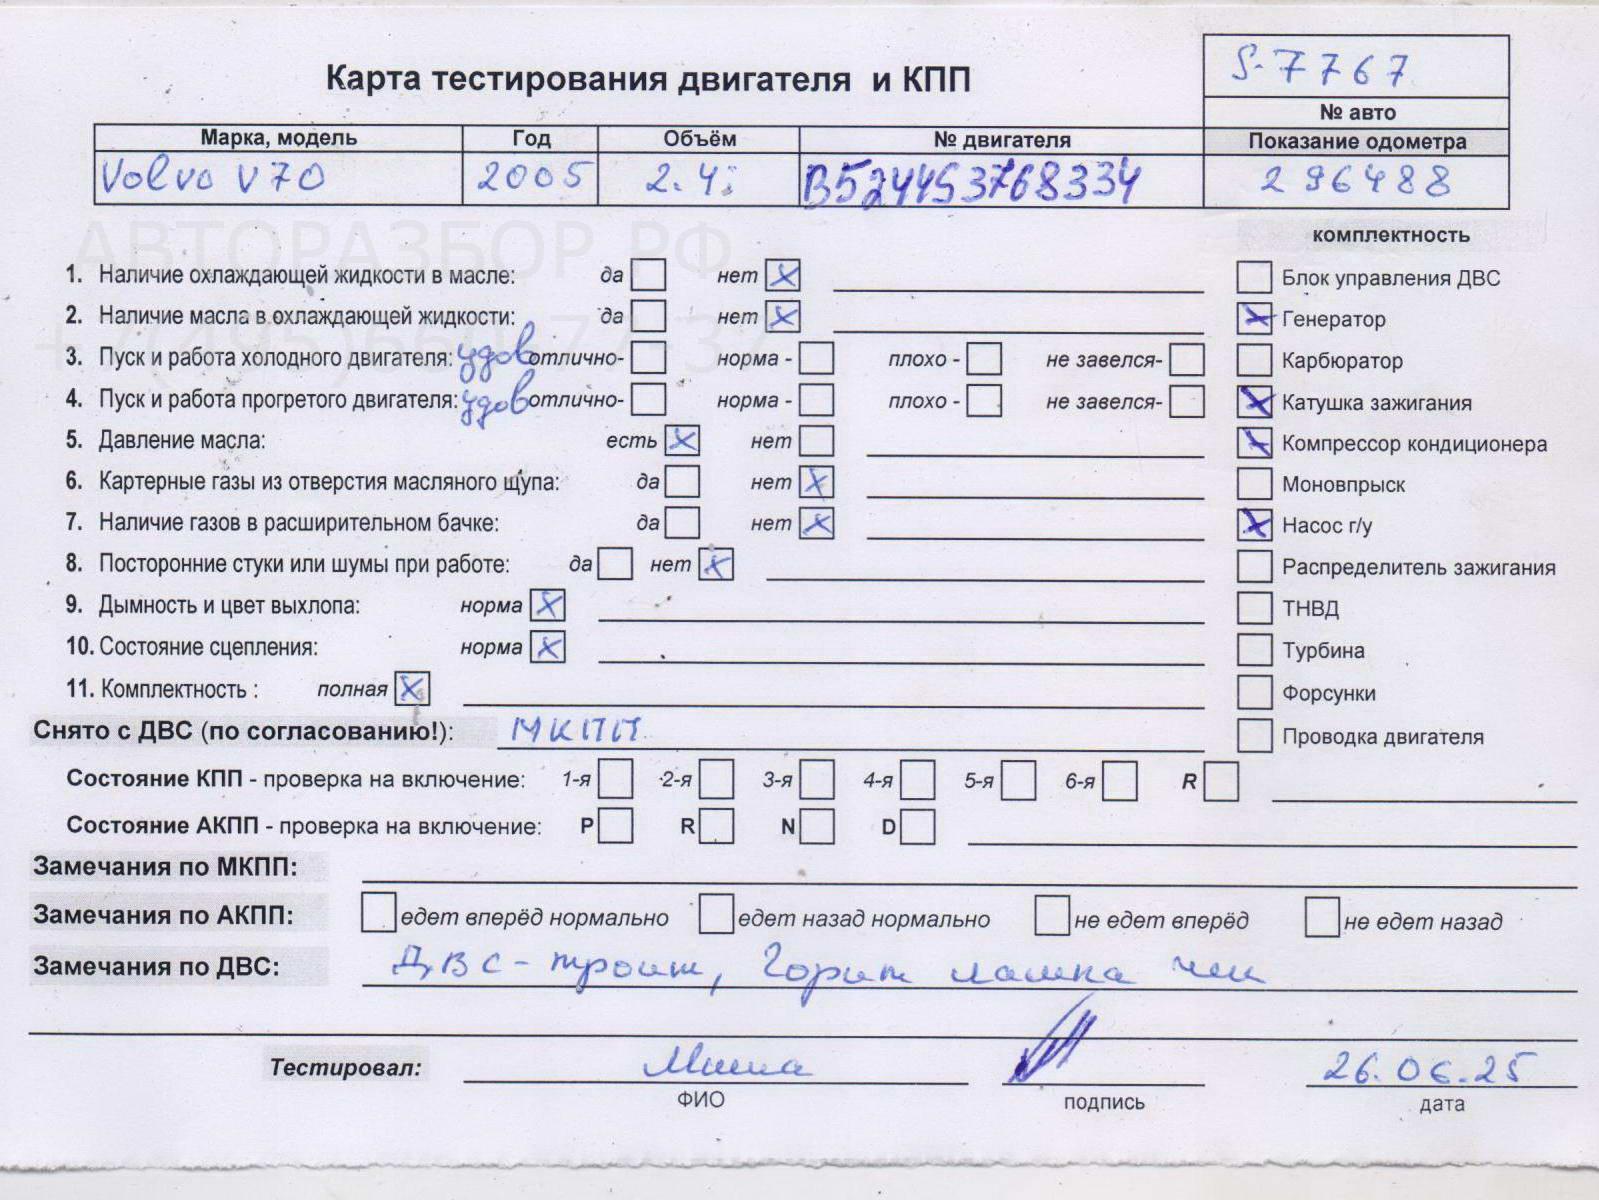 S-7767
Карта тестирования двигателя и КПП
№ авто
Марка, модель Год Объём № двигателя Показание одометра
Volvo V70 2005 2.4i B5244S3768334 296488
АВТОРАЗБОР.РФ
комплектность
1. Наличие охлаждающей жидкости в масле: да нет X Блок управления ДВС
2. Наличие масла в охлаждающей жидкости: да нет X X Генератор
3. Пуск и работа холодного двигателя: удов отлично- норма - плохо - не завелся- Карбюратор
4. Пуск и работа прогретого двигателя: удов отлично- норма - плохо - не завелся- X Катушка зажигания
5. Давление масла: есть X нет X Компрессор кондиционера
6. Картерные газы из отверстия масляного щупа: да нет X Моновпрыск
7. Наличие газов в расширительном бачке: да нет X X Насос г/у
8. Посторонние стуки или шумы при работе: да нет X Распределитель зажигания
9. Дымность и цвет выхлопа: норма X ТНВД
10. Состояние сцепления: норма X Турбина
11. Комплектность : полная X Форсунки
Снято с ДВС (по согласованию!): МКПП Проводка двигателя
Состояние КПП - проверка на включение: 1-я 2-я 3-я 4-я 5-я 6-я R
Состояние АКПП - проверка на включение: P R N D
Замечания по МКПП:
Замечания по АКПП: едет вперёд нормально едет назад нормально не едет вперёд не едет назад
Замечания по ДВС: ДВС - троит, Горит лампа чек
Тестировал: Миша 26.06.25
ФИО подпись дата